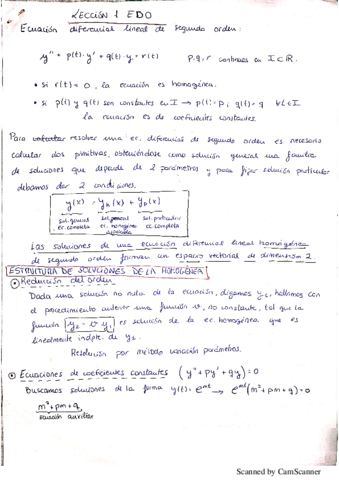 LECCIÓN 1 EDO
Ecuación diferencial lineal de segundo orden:
y'' + p(t)·y' + q(t)·y = r(t)   p, q, r continuas en I⊂R.
• Si r(t) = 0, la ecuación es homogénea.
• si p(t) y q(t) son constantes en I → p(t)=p; q(t)=q ∀t∈I
la ecuación es de coeficientes constantes.
Para resolver una ec. diferencial de segundo orden es necesario
calcular dos primitivas, obteniéndose como solución general una familia
de soluciones que depende de 2 parámetros y para fijar solución particular
debemos dar 2 condiciones.
y(x) = yh(x) + yp(x)
sol. general sol. general sol. particular
ec. completa ec. homogénea ec. completa
asociada
Las soluciones de una ecuación diferencial lineal homogénea
de segundo orden forman un espacio vectorial de dimensión 2.
ESTRUCTURA DE SOLUCIONES DE LA HOMOGÉNEA
• Reducción del orden
Dada una solución no nula de la ecuación, digamos y1, hallamos con
el procedimiento anterior una función v, no constante, tal que la
función y2 = v y1 es solución de la ec. homogénea que es
linealmente indpte. de y1.
Resolución por método variación parámetros.
• Ecuaciones de coeficientes constantes (y'' + py' + qy) = 0
Buscamos soluciones de la forma y(t) = e^mt → e^mt(m²+pm+q) = 0
m²+pm+q,
ecuación auxiliar
Scanned by CamScanner